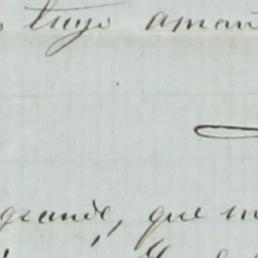 tuyo aman
grande, que m